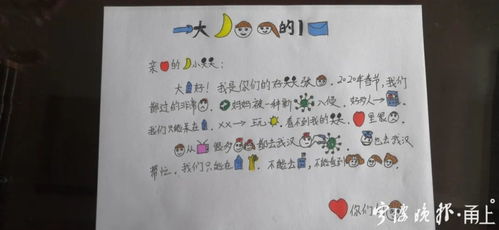 大的1
亲的小：
大好！我是你们的好张。2020年春节，我们
都过的非常。妈妈被一种新入侵，好多人
我们只能呆在，××→玩，看不到我的，里很。
从很多都去武汉。也去武汉
帮忙，我们只能在，不能去，不能
你们
宁波晚报·甬上